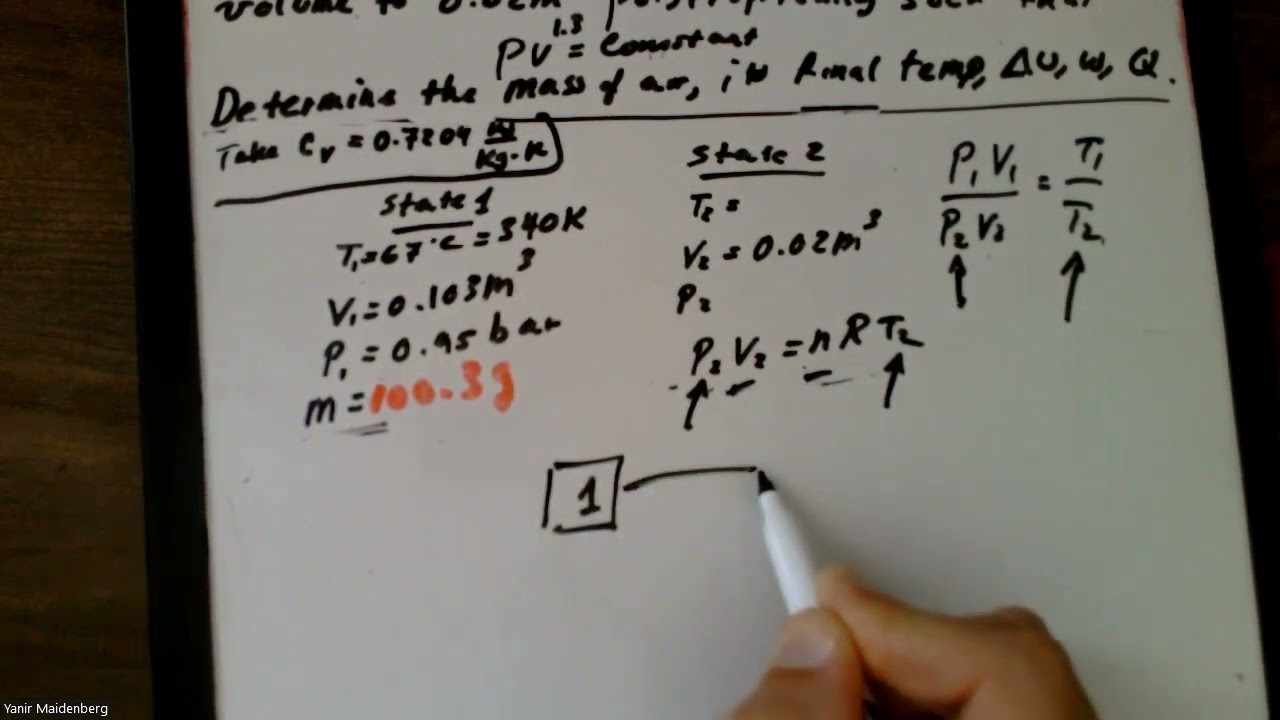 volume to 0.02m³ polytropically such that
PV^1.3 = Constant
Determine the mass of air, its final temp, ΔU, W, Q.
Take Cv = 0.7204 kJ/kg·K
State 1
T₁=67°C = 340K
V₁=0.103m³
P₁ = 0.95 bar
m=100.3g
State 2
T₂ =
V₂ = 0.02m³
P₂
P₂V₂ = nRT₂
P₁V₁/P₂V₂ = T₁/T₂
1
Yanir Maidenberg